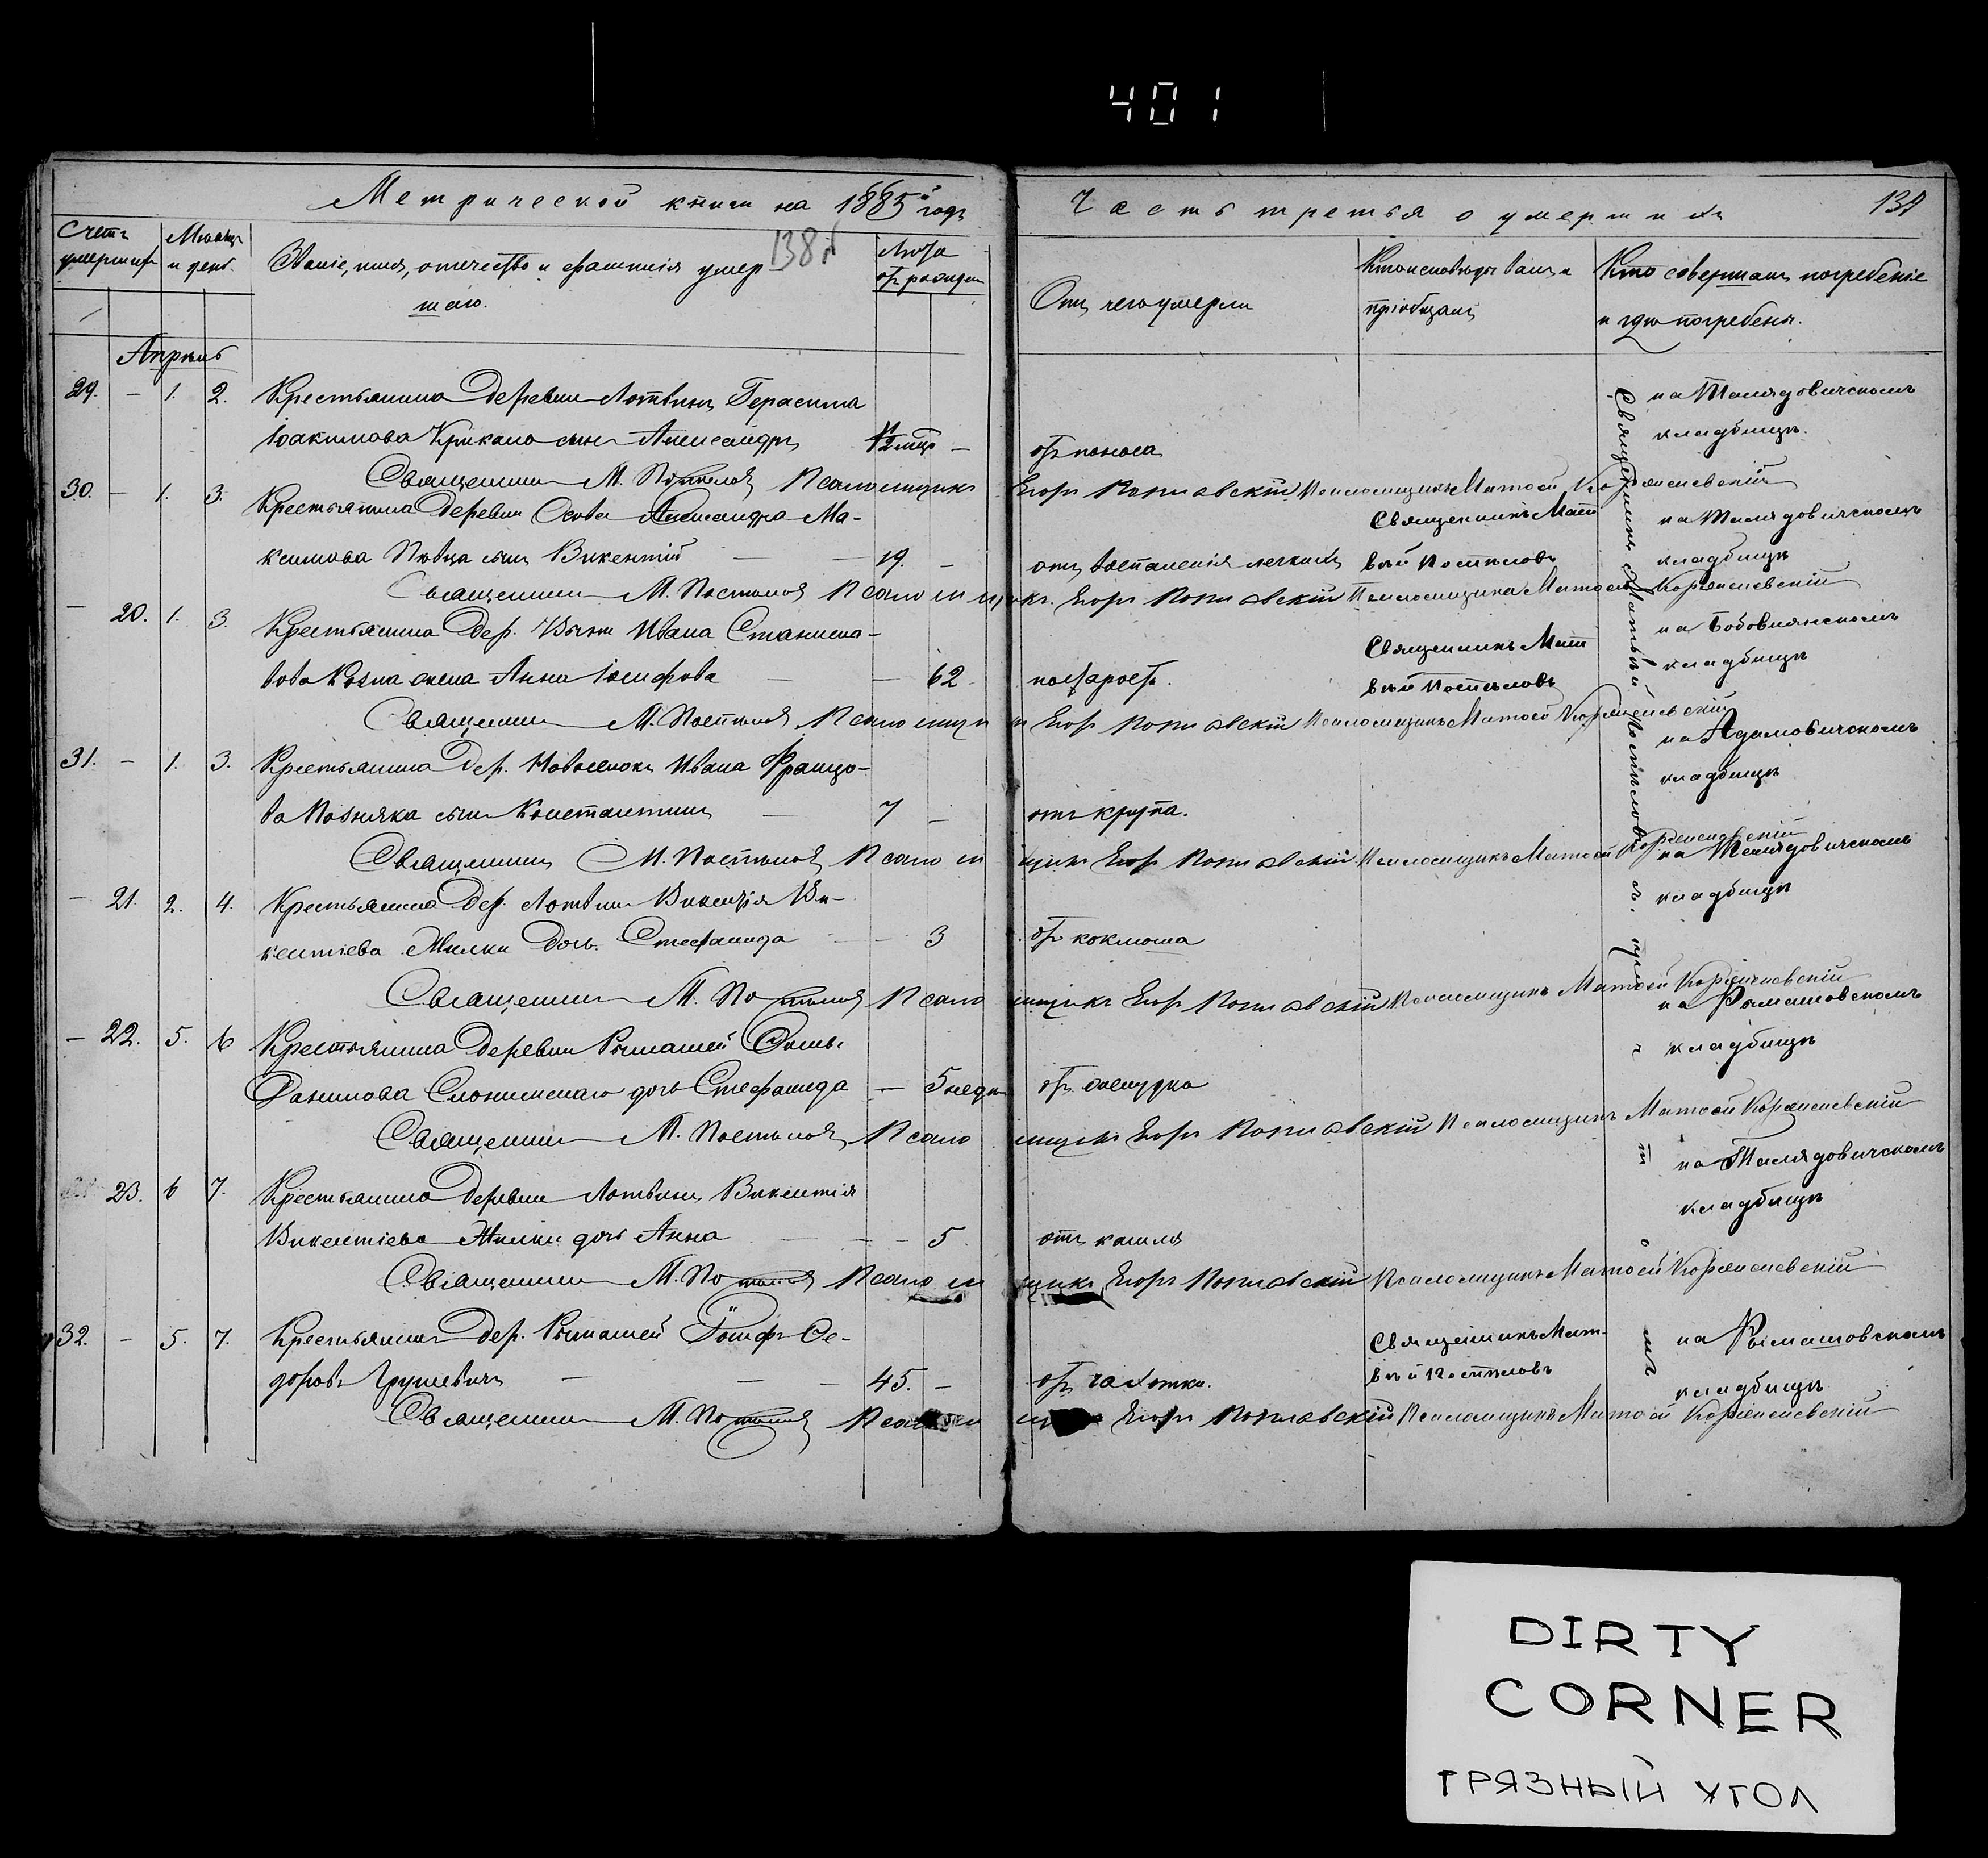 401
Метрической книги на 1885й годъ
138
Часть третья о умершихъ
Счетъ умершихъ
Месяцъ и день.
Званіе, имя, отчество и фамилія умер-
шаго.
Лѣта
отъ рожденія
Отъ чего умерли
Кто исповѣдывалъ и
пріобщалъ
Кто совершалъ погребеніе
и гдѣ погребены.
Апрѣль
29. – 1. 2. Крестьянина Деревни Лотвинъ Герасима
Іоакимова сынъ Александръ
отъ поноса
на Талядовичскомъ
кладбищѣ.
Священникъ М. Постѣловъ Псаломщикъ Егоръ Поплавскій Псаломщикъ Матѳей
30. – 1. 3. Крестьянина Деревни Осова Александра Ма-
ксимова сынъ Викентій – 19. –
отъ воспаленія легкихъ
Священникъ Мат
вѣй Постѣловъ
на Талядовичскомъ
кладбищѣ
Священникъ М. Постѣловъ Псаломщикъ Егоръ Поплавскій Псаломщикъ Матѳей
– 20. 1. 3. Крестьянина Дер. Ивана Станисла-
вова жена Анна Іосифова – – 62
по старости.
Священникъ Мат
вѣй Постѣловъ
на Бобовнянскомъ
кладбищѣ
Священникъ М. Постѣловъ Псаломщикъ Егоръ Поплавскій Псаломщикъ Матѳей
31. – 1. 3. Крестьянина Дер. Новоселокъ Ивана Францо-
ва Позняка сынъ Константинъ – 7 –
отъ крупа.
на Адамовичскомъ
кладбищѣ
Священникъ М. Постѣловъ Псаломщикъ Егоръ Поплавскій Псаломщикъ Матѳей
– 21. 2. 4. Крестьянина Дер. Лотвинъ Викентія Ви-
кентіева Жилки дочь Стефанида – – 3
отъ коклюша
на Талядовичскомъ
кладбищѣ
Священникъ М. Постѣловъ Псаломщикъ Егоръ Поплавскій Псаломщикъ Матѳей
– 22. 5. 6 Крестьянина Деревни Рымашей
Данилова дочь Стефанида – 5 недѣл
отъ желудка
на Рымашовскомъ
кладбищѣ
Священникъ М. Постѣловъ Псаломщикъ Егоръ Поплавскій Псаломщикъ Матѳей
23. 6 7. Крестьянина Деревни Лотвинъ Викентія
Викентіева Жилки дочь Анна – – 5
отъ кашля
на Талядовичскомъ
кладбищѣ
Священникъ М. Постѣловъ Псаломщикъ Егоръ Поплавскій Псаломщикъ Матѳей
32. – 5. 7. Крестьянинъ Дер. Рымашей Іосифъ Ѳе-
доровъ Грушевичъ – – 45. –
отъ чахотки.
Священникъ Мат-
вѣй Постѣловъ
на Рымашовскомъ
кладбищѣ
Священникъ М. Постѣловъ Егоръ Поплавскій Псаломщикъ Матѳей
Священникъ Матвѣй Постѣловъ
DIRTY
CORNER
ГРЯЗНЫЙ УГОЛ